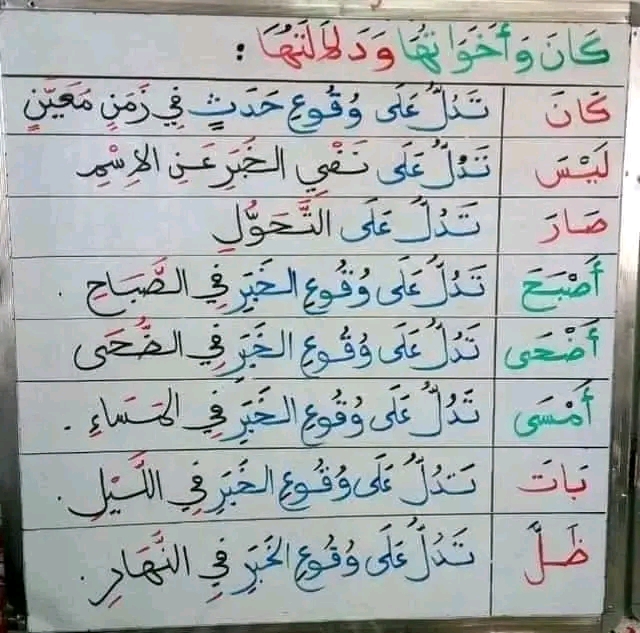 كَانَ وَأَخَوَاتُهَا وَدَلَالَتُهَا :
كَانَ تَدُلُّ عَلَى وُقُوعِ حَدَثٍ فِي زَمَنٍ مُعَيَّنٍ
لَيْسَ تَدُلُّ عَلَى نَفْيِ الخَبَرِ عَنِ الاِسْمِ
صَارَ تَدُلُّ عَلَى التَّحَوُّلِ
أَصْبَحَ تَدُلُّ عَلَى وُقُوعِ الخَبَرِ فِي الصَّبَاحِ .
أَضْحَى تَدُلُّ عَلَى وُقُوعِ الخَبَرِ فِي الضُّحَى
أَمْسَى تَدُلُّ عَلَى وُقُوعِ الخَبَرِ فِي المَسَاءِ .
بَاتَ تَدُلُّ عَلَى وُقُوعِ الخَبَرِ فِي اللَّيْلِ .
ظَلَّ تَدُلُّ عَلَى وُقُوعِ الخَبَرِ فِي النَّهَارِ .